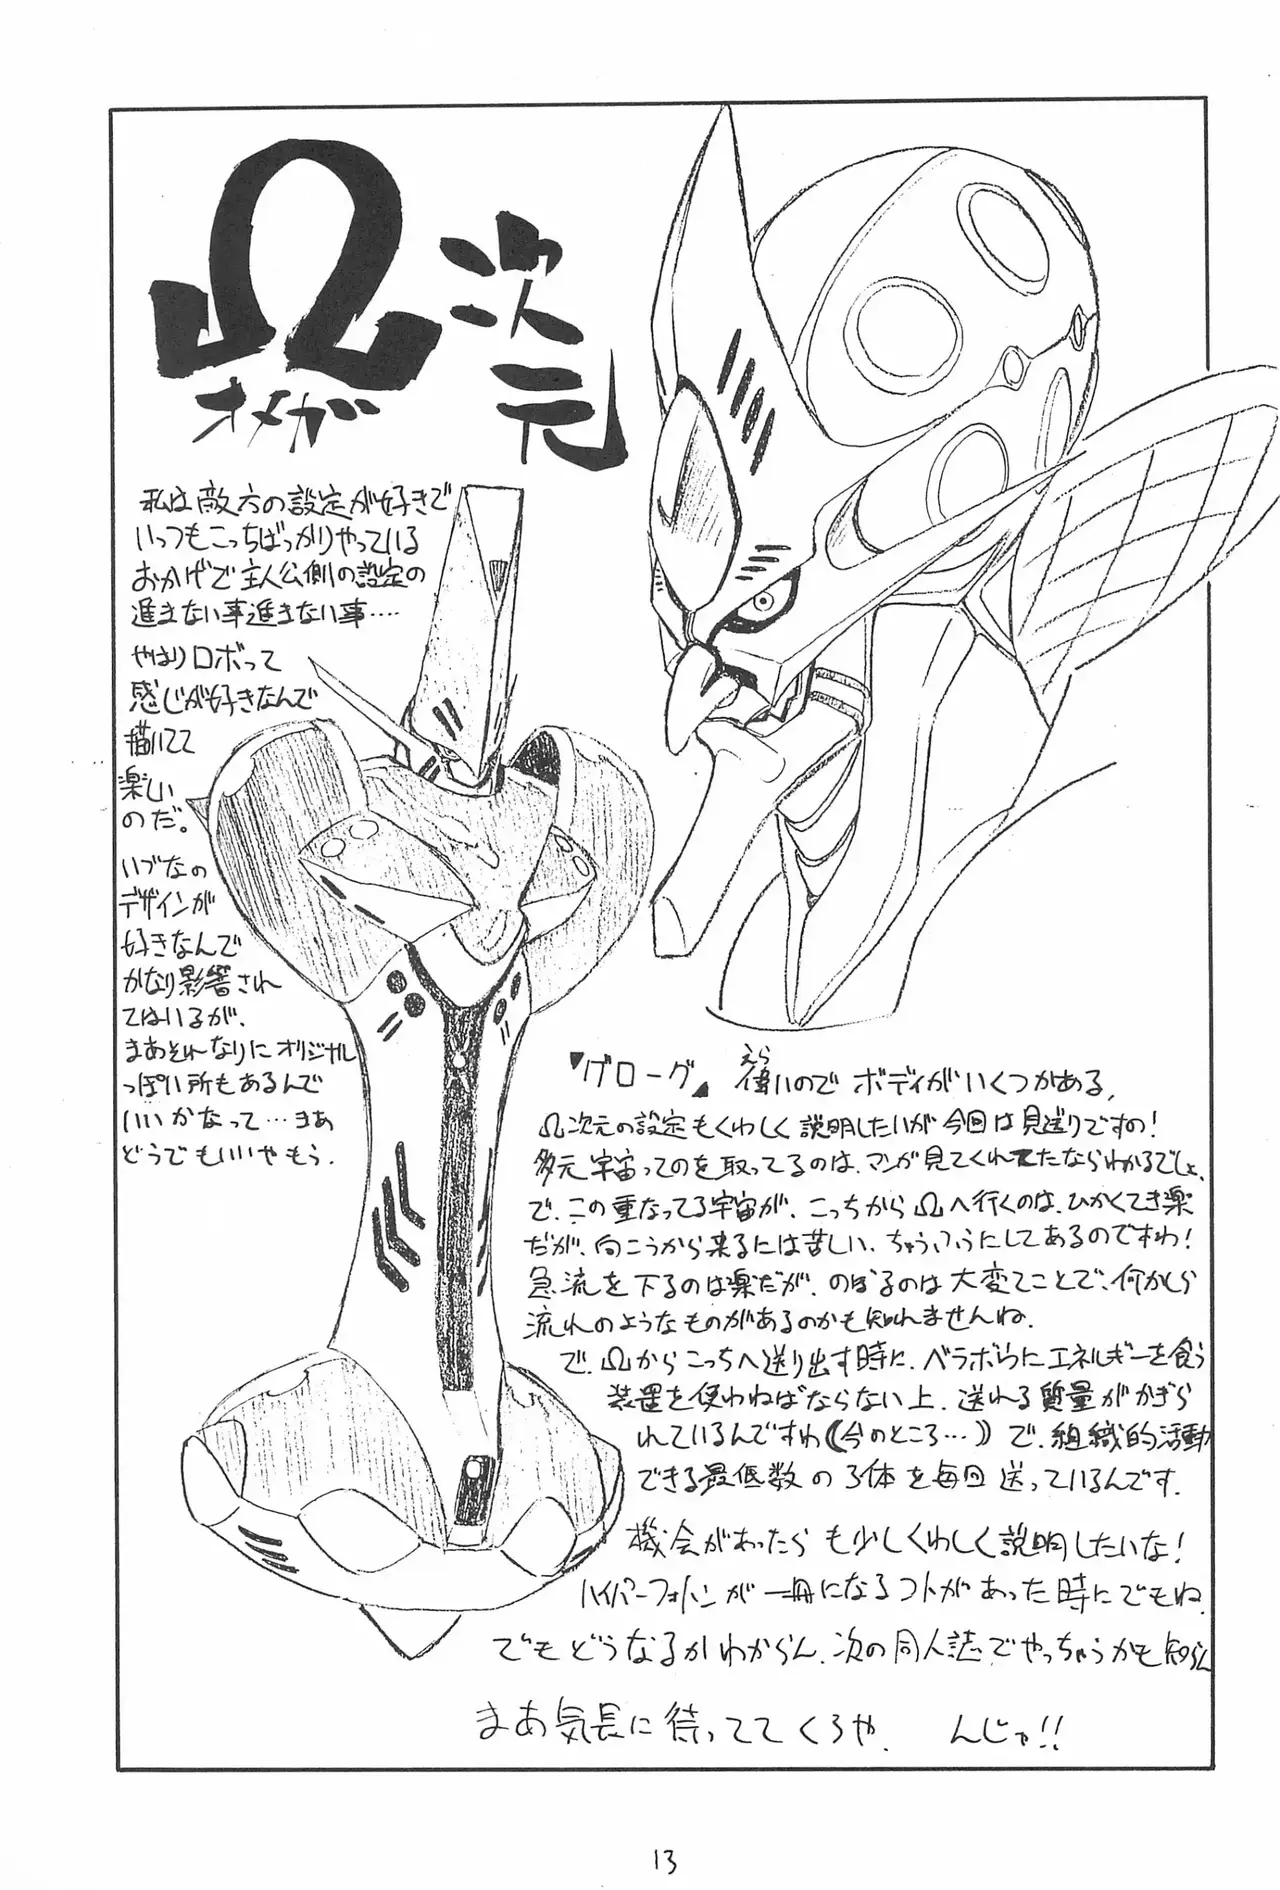 Ω次元
オメガ
私は敵方の設定が好きで
いつもこっちばっかりやっている
おかげで主人公側の設定の
進まない事進まない事‥‥
やはりロボって
感じが好きなんで
描いてて
楽しい
のだ。
いづなの
デザインが
好きなんで
かなり影響され
てはいるが、
まあそれなりにオリジナル
っぽい所もあるんで
いいかなって…まあ
どうでもいいやもう.
『ゲローグ』 偉いのでボディがいくつかある,
えら
Ω次元の設定もくわしく説明したいが今回は見送りですの!
多元宇宙ってのを取ってるのは、マンガ見てくれてたならわかるでしょ、
で、この重なってる宇宙が、こっちからΩへ行くのは、ひかくてき楽
だが、向こうから来るには苦しい、ちゅうふうにしてあるのですわ!
急流を下るのは楽だが、のぼるのは大変てことで、何かしら
流れのようなものがあるのかも知れませんね.
で、Ωからこっちへ送り出す時に、ベラボらにエネルギーを食う
装置を使わねばならない上、送れる質量がかぎら
れているんですわ((今のところ…))で、組織的活動
できる最低数の3体を毎回送っているんです.
機会があったらも少しくわしく説明したいな!
ハイパーフォトンが一冊になるコトがあった時にでもね.
でもどうなるかわからん.次の同人誌でやっちゃうかも知らん
まあ気長に待っててくろや. んじゃ!!
13